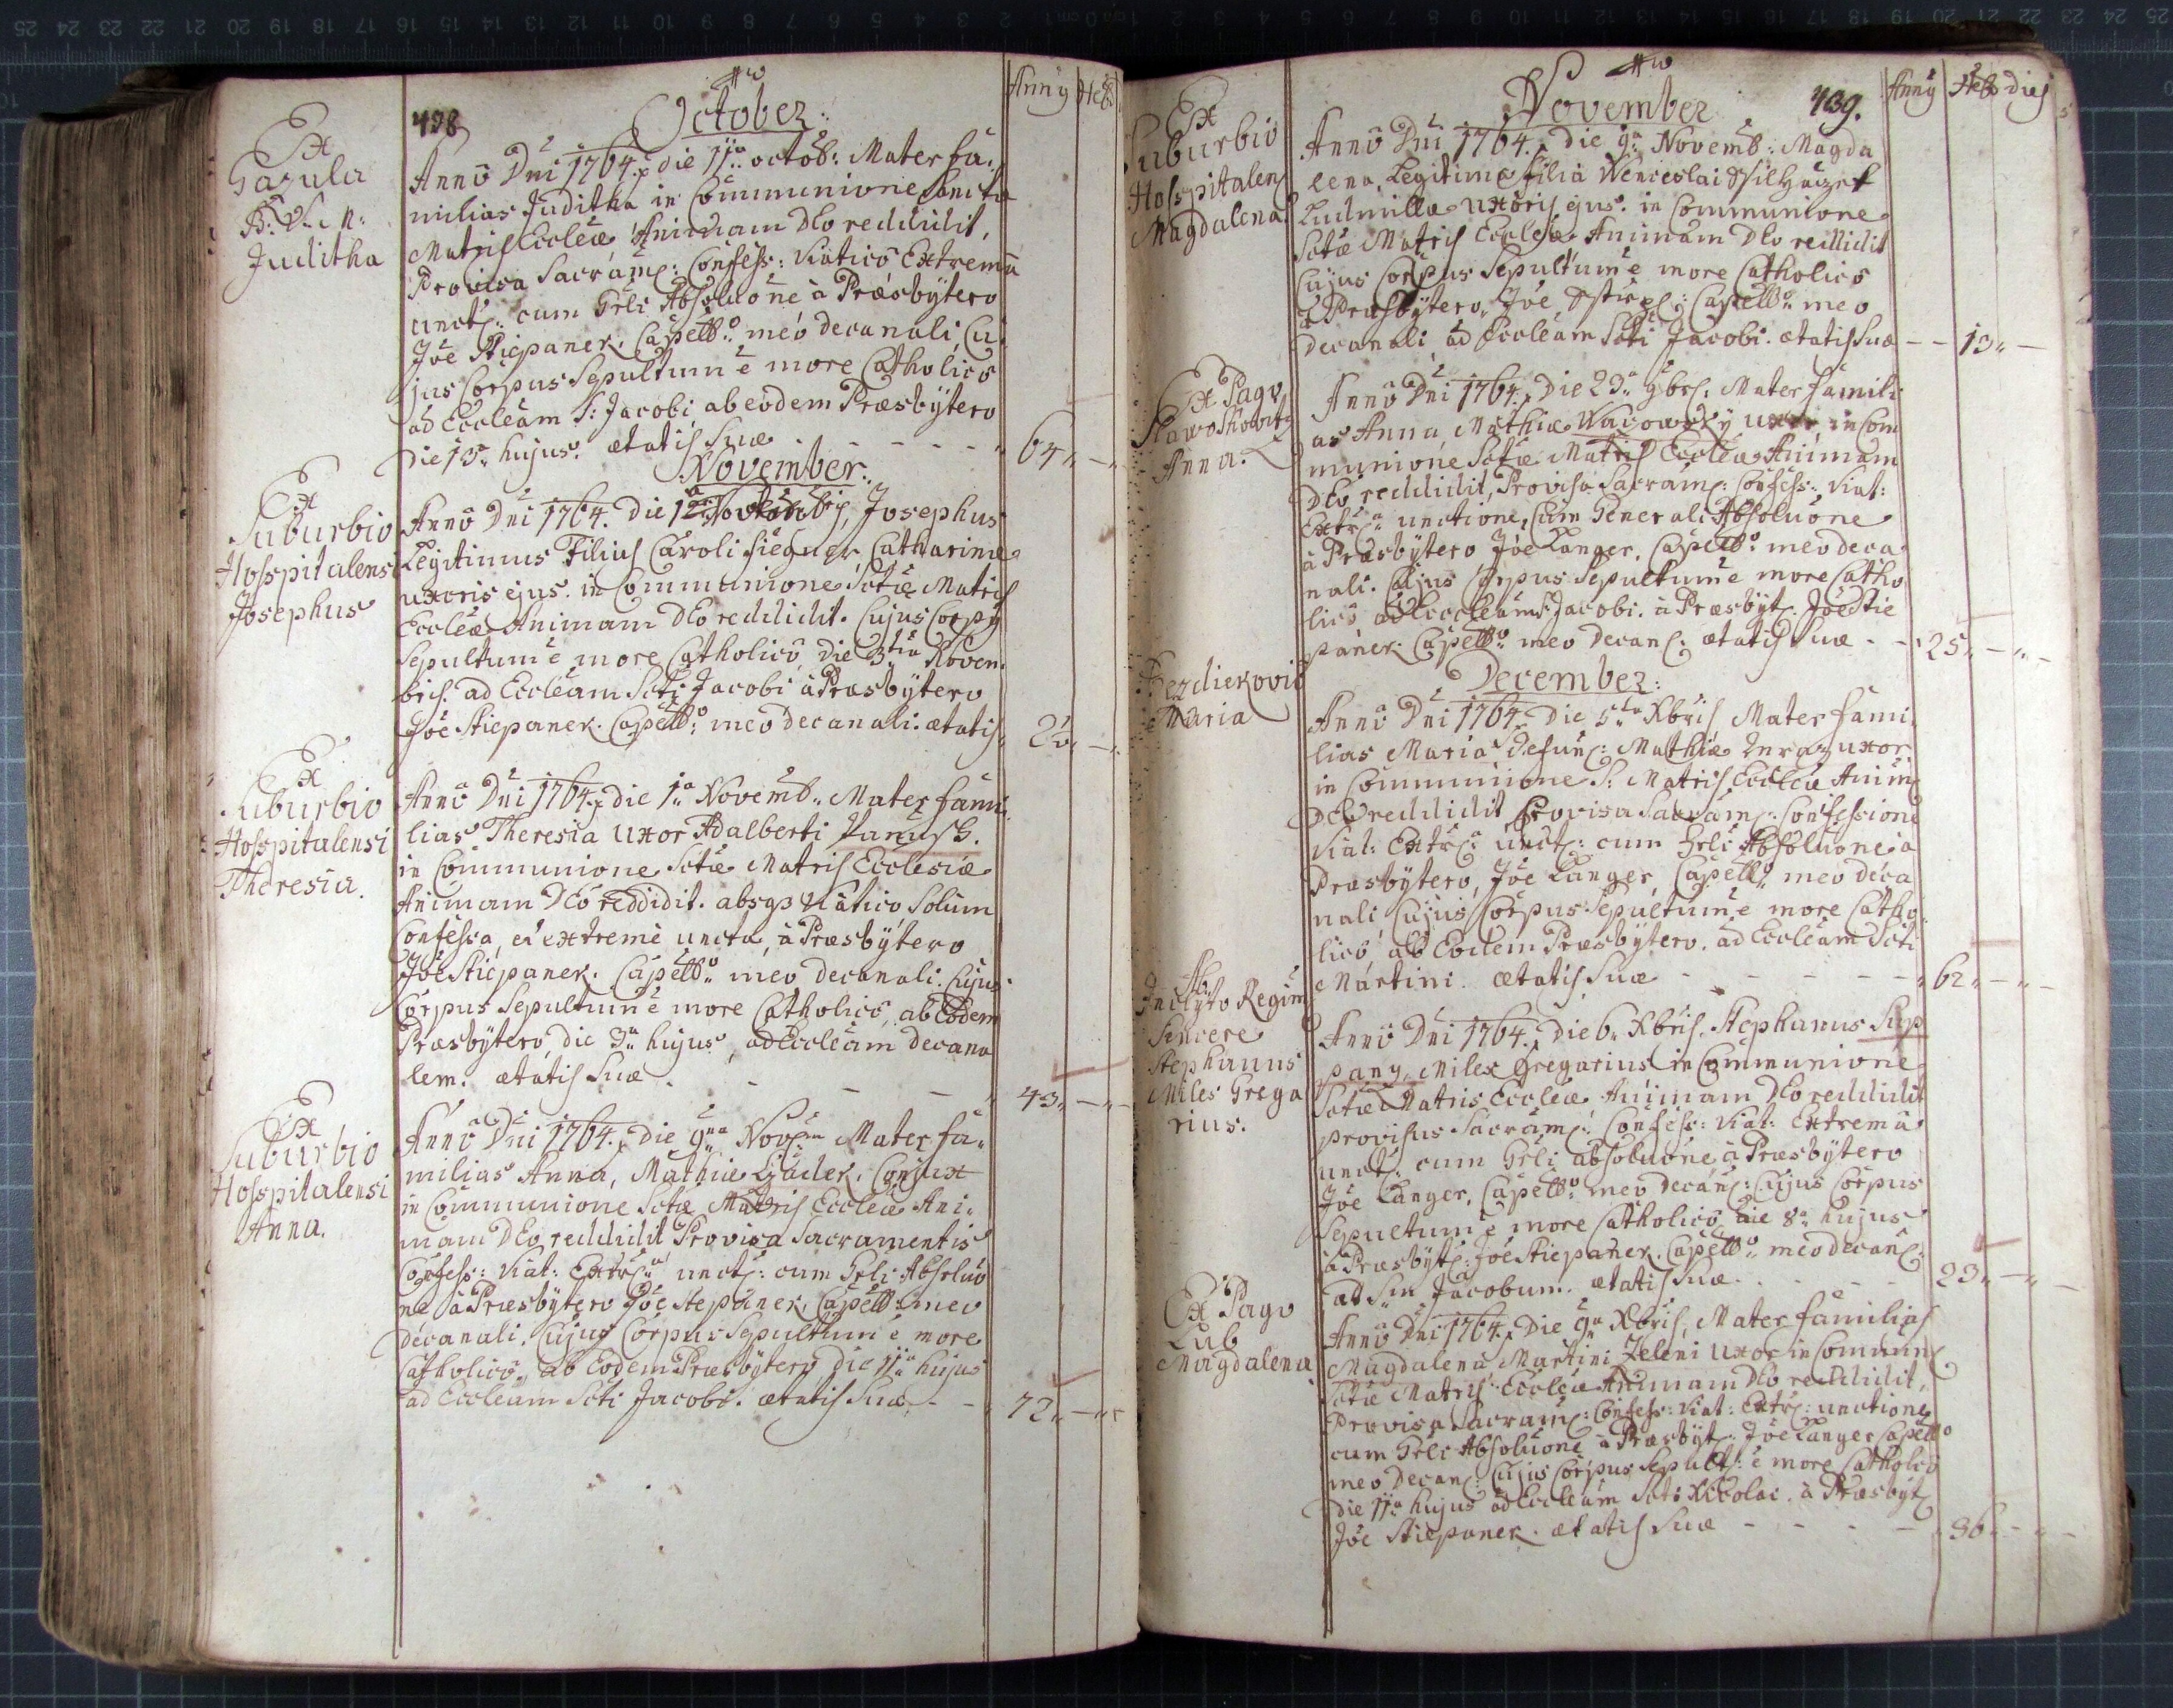 438
October:
Annÿ Heb:
Ex
Gazula
B: V: M:
Juditha
Anno Dni 1764. die 11a octob: Mater fa:
milias Juditha in Communione Sancta
Matris Eccleæ Animam Deo reddidit,
Provisa Sacram: Confess: Viatico Extrema
unct: cum Grli Absolu͞one à Præsbÿtero
Joe Stiepanek. Capello meo decanali, Cu
jus Corpus Sepultum e more Catholico
ad Eccleam S: Jacobi ab eodem Præsbÿtero
die 13. hujus. ætatis suæ - - - - 64
November.
Ex
Suburbio
Hosspitalensi
Josephus
Anno Dni 1764. Die 1a Novembris, Josephus
Legitimus Filius Caroli Siegner Catharinæ
uxoris ejus. in Communione Sctæ Matris
Eccleæ Animam Deo reddidit. Cujus Corpÿ
Sepultum e more Catholico die 3tia Novem
bris. ad Eccleam Scti Jacobi à Præsbÿtero
Joe Stiepanek. Capello meo decanali. ætatis
Ex
Suburbio
Hosspitalensi
Theresia.
Anno Dni 1764. die 1a Novemb: Mater fami
lias Theresia uxor Adalberti
in Communione Sctæ Matris Ecclesiæ
Animam Deo reddidit. absq3 Viatico Solum
Confessa, et extreme uncta, à Præsbÿtero
Joe Stiepanek. Capello meo decanali. Cujus
Corpus Sepultum e more Catholico, ab Eodem
Præsbÿtero, die 3a hujus, ad Eccleam decana
lem. ætatis Suæ - - - 43
Ex
Suburbio
Hosspitalensi
Anna.
Anno Dni 1764. Die 9na Mater fa:
milias Anna, Mathiæ Conjux
in Communione Sctæ Matris Eccleæ Ani:
mam Deo reddidit Provisa Sacramentis
Confess: Viat: Extr: unct: cum Grli Absoluo
ne à Præsbÿtero Joe Stepanek, Capello meo
decanali. Cujus Corpus Sepultum e more
Catholico, ab Eodem Præsbÿtero die 11a hujus
ad Eccleam Scti Jacobi. ætatis Suæ - - 72
November
439.
Annÿ Heb dies
Ex
Suburbio
Hosspitalen
Magdalena
Anno Dni 1764. die 9a Novemb: Magda
lena, Legitima Filia Wenceslai
Ludmillæ uxoris ejus. in Communione
Sctæ Matris Eccleæ Animam Deo reddidit
Cujus Corpus Sepultum e more Catholico
à Præsbÿtero, Joe Capello meo
decanali ad Eccleam Scti Jacobi. ætatis Suæ - - 13
Ex Pago
Slawoschowitz
Anna.
Anno Dni 1764. Die 23a 9bris, Mater famili
as Anna, Mathiæ Wacowsky uxor in Com
munione Sctæ Matris Eccleæ Animam
Deo reddidit, Provisa Sacram: Confess: Viat:
Extr: unctione, Cum Generali Absoluone
à Præsbÿtero Joe Langer, Capello meo deca
nali. Cujus Corpus Sepultum e more Catho
lico ad Eccleam S: Jacobi. à Præsbÿt: Joe Stie
panek. Capello meo decan: ætatis Suæ - - 25
December:
Bezdiekovic
Maria
Anno Dni 1764. Die 5ta Xbris Mater fami
lias Maria defunc: Mathiæ uxor
in Communione S: Matris Eccleæ Anim
Deo reddidit Provisa Sacram: Confessione
Viat: Extr: unct: cum Grli Absoluone à
Præsbÿtero, Joe Langer, Capello meo deca
nali Cujus Corpus Sepultum e more Catho
lico, ab Eodem Præsbÿtero. ad Eccleam Scti
Martini. ætatis Suæ - - - 62
Ab
Inclyto Regim
Sincere
Stephanus
Miles Grega
rius.
Anno Dni 1764. Die 6. Xbris. Stephanus Sup
pany, Miles Gregarius in Communione
Sctæ Matris Eccleæ Animam Deo reddidit
provisus Sacram: Confess: Viat: Extrema
unct: cum Grli absoluone à Præsbÿtero
Joe Langer, Capello meo decan: Cujus Corpus
Sepultum e more Catholico die 8a hujus
à Præsbÿt: Joe Stiepanek. Capello meo decan:
ad Sm Jacobum. ætatis Suæ - - 23
Ex Pago
Lub
Magdalena
Anno Dni 1764. Die 9a Xbris, Mater familias
Magdalena Martini Zeleni uxor in Commun
Sctæ Matris Eccleæ Animam Deo reddidit,
Provisa Sacram: Confess: Viat: Extr: unctione
cum Grli Absoluone à Præsbÿt: Joe Langer Capello
meo Decan: Cujus Corpus Sepult: e more Catholico
die 11a hujus ad Eccleam Scti Nicolai. à Præsbÿt
Joe Stiepanek. ætatis Suæ - - - - 36